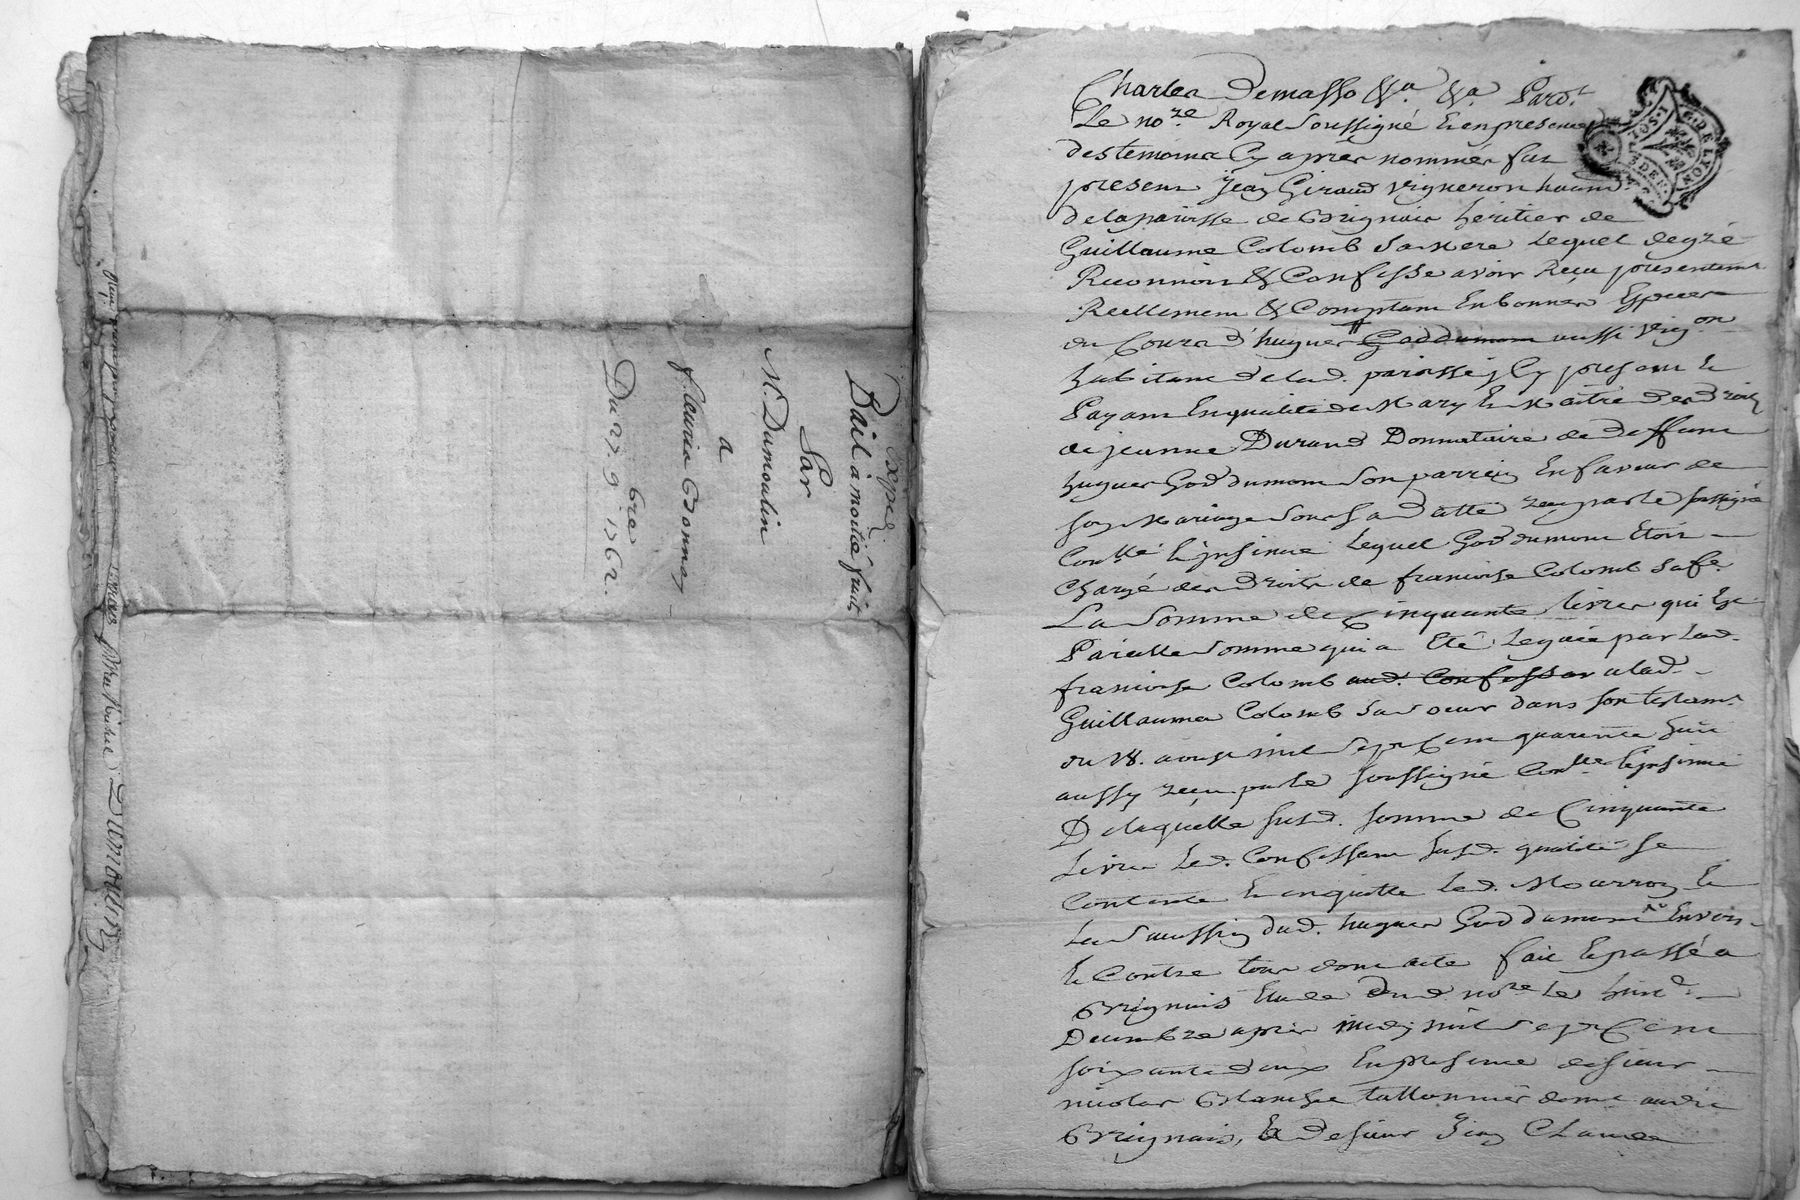 expée
Bail à moitié fruits
Par
Mr. Dumoulin
a
fleurie Bonnet
Du 27 9bre 1762.
Dumoulin
G. DE LYON
SOL
DEN.
Charles Demasso &a. &a. Pard.t
Le no.re Royal soussigné & en presence
des temoins cy apres nommés fut
present Jean Giraud vigneron habit
de la paroisse de Brignais heritier de
Guillaume Colomb sa mere lequel de gré
Reconnoit & Confesse avoir Reçu presentemt
Reellement & Comptant En bonnes Especes
du Cours d'hugues God dumont aussi vig.on
habitant de lad. paroisse, cy present &
Payant En qualité de Mary & Maitre des droits
de jeanne Durand Donnataire de deffunt
hugues God dumont son parrein En faveur de
son Mariage sous sa datte reçu par le soussigné
Con.llé & jnsinué lequel God dumont Etoit
Chargé des droits de francoise Colomb sa fe.
La Somme de Cinquante livres qui Est
Pareille somme qui a Eté leguée par lad.
francoise Colomb aud. Confessant a lad.
Guillauma Colomb sa soeur dans son testam.t
du 18. aoust mil sept Cent quarente huit
aussy reçu par le soussigné Con.llé & jnsinué
De laquelle susd. somme de Cinquante
livres led. Confessant susd. qualité se
Contente & en quitte led. Mourron &
les d. hugues God dumont Envers
& Contre tous dont acte fait & passé a
Brignais Etude dud. no.re le huit
Decembre apres midy mil sept Cent
soixante deux En presence de sieur
nicolas Blanche tallonnier dem.t aud.
Brignais, & de sieur Jean Claude